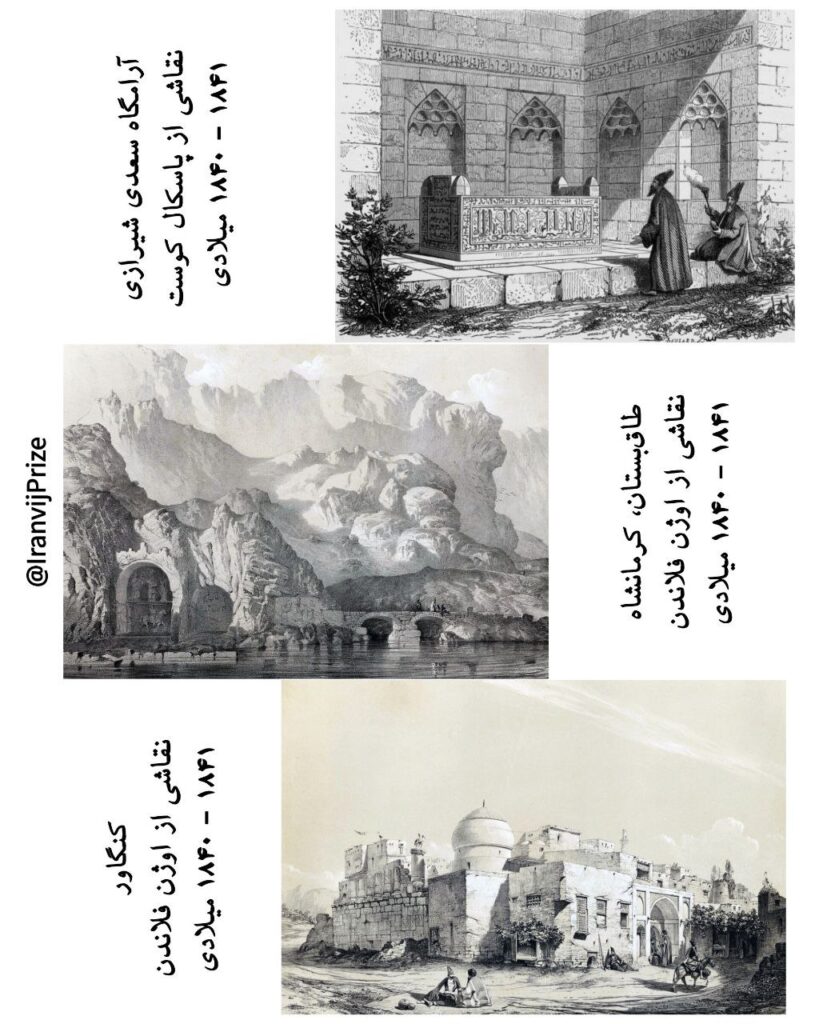 آرامگاه سعدی شیرازی
نقاشی از پاسکال کوست
۱۸۴۱ - ۱۸۴۰ میلادی
@IranvijPrize
طاق‌بستان، کرمانشاه
نقاشی از اوژن فلاندن
۱۸۴۱ - ۱۸۴۰ میلادی
کنگاور
نقاشی از اوژن فلاندن
۱۸۴۱ - ۱۸۴۰ میلادی